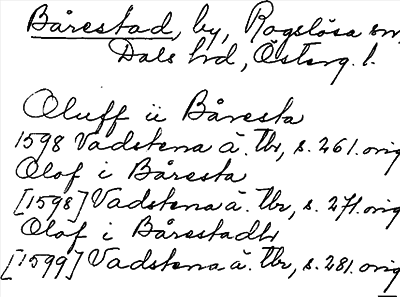 Bårestad, by, Rogslösa sn,
Dals hd, Österg. l.
Oluff ii Båresta
1598 Vadstena ä. Tb, s. 261. orig
Olof i Båresta
[1598] Vadstena ä. Tb, s. 271. orig
Olof i Bårestadh
[1599] Vadstena ä. Tb, s. 281. orig